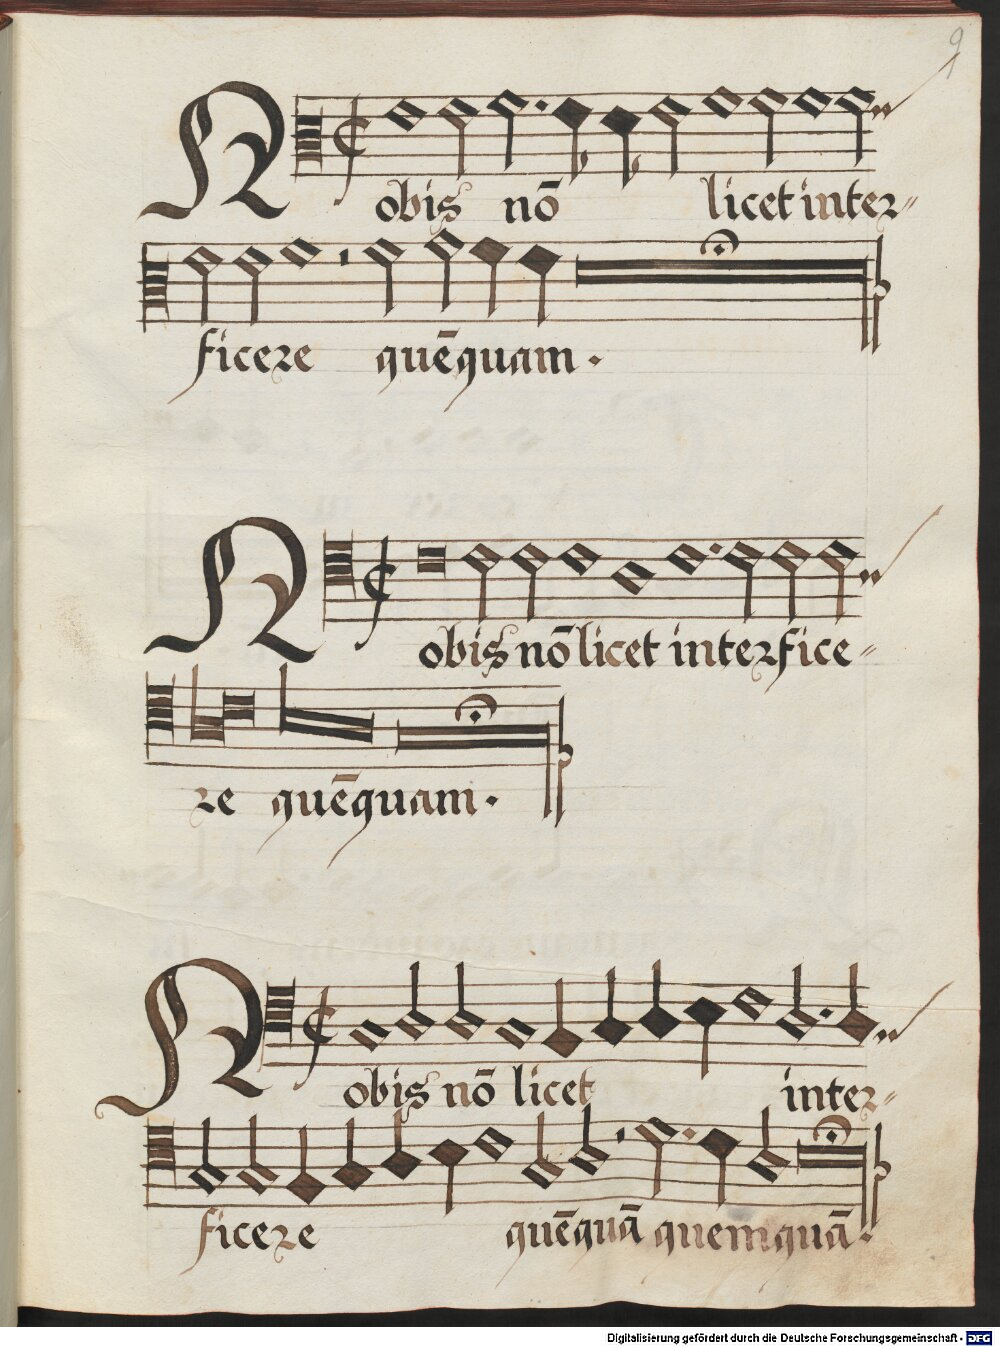 9
Nobis nō licet inter=
ficere quēquam.
Nobis nō licet interfice=
re quēquam.
Nobis nō licet inter=
ficere quēquā quemquā.
Digitalisierung gefördert durch die Deutsche Forschungsgemeinschaft - DFG